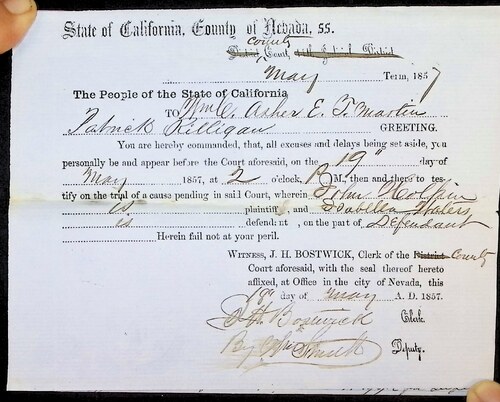 State of California, County of Nevada, ss.
County
District Court, 14th Judicial District
May Term, 1857
The People of the State of California
TO Wm C. Asher E. T. Martin
Patrick Killigan GREETING.
You are hereby commanded, that all excuses and delays being set aside, you
personally be and appear before the Court aforesaid, on the 19th day of
May 1857, at 2 o'clock, P M., then and there to tes-
tify on the trial of a cause pending in said Court, wherein John
is plaintiff, and Isabella
is defendant, on the part of Defendant
Herein fail not at your peril.
WITNESS, J. H. BOSTWICK, Clerk of the District County
Court aforesaid, with the seal thereof hereto
affixed, at Office in the city of Nevada, this
18th day of May A. D. 1857.
J H Bostwick Clerk.
By Wm Smith Deputy.